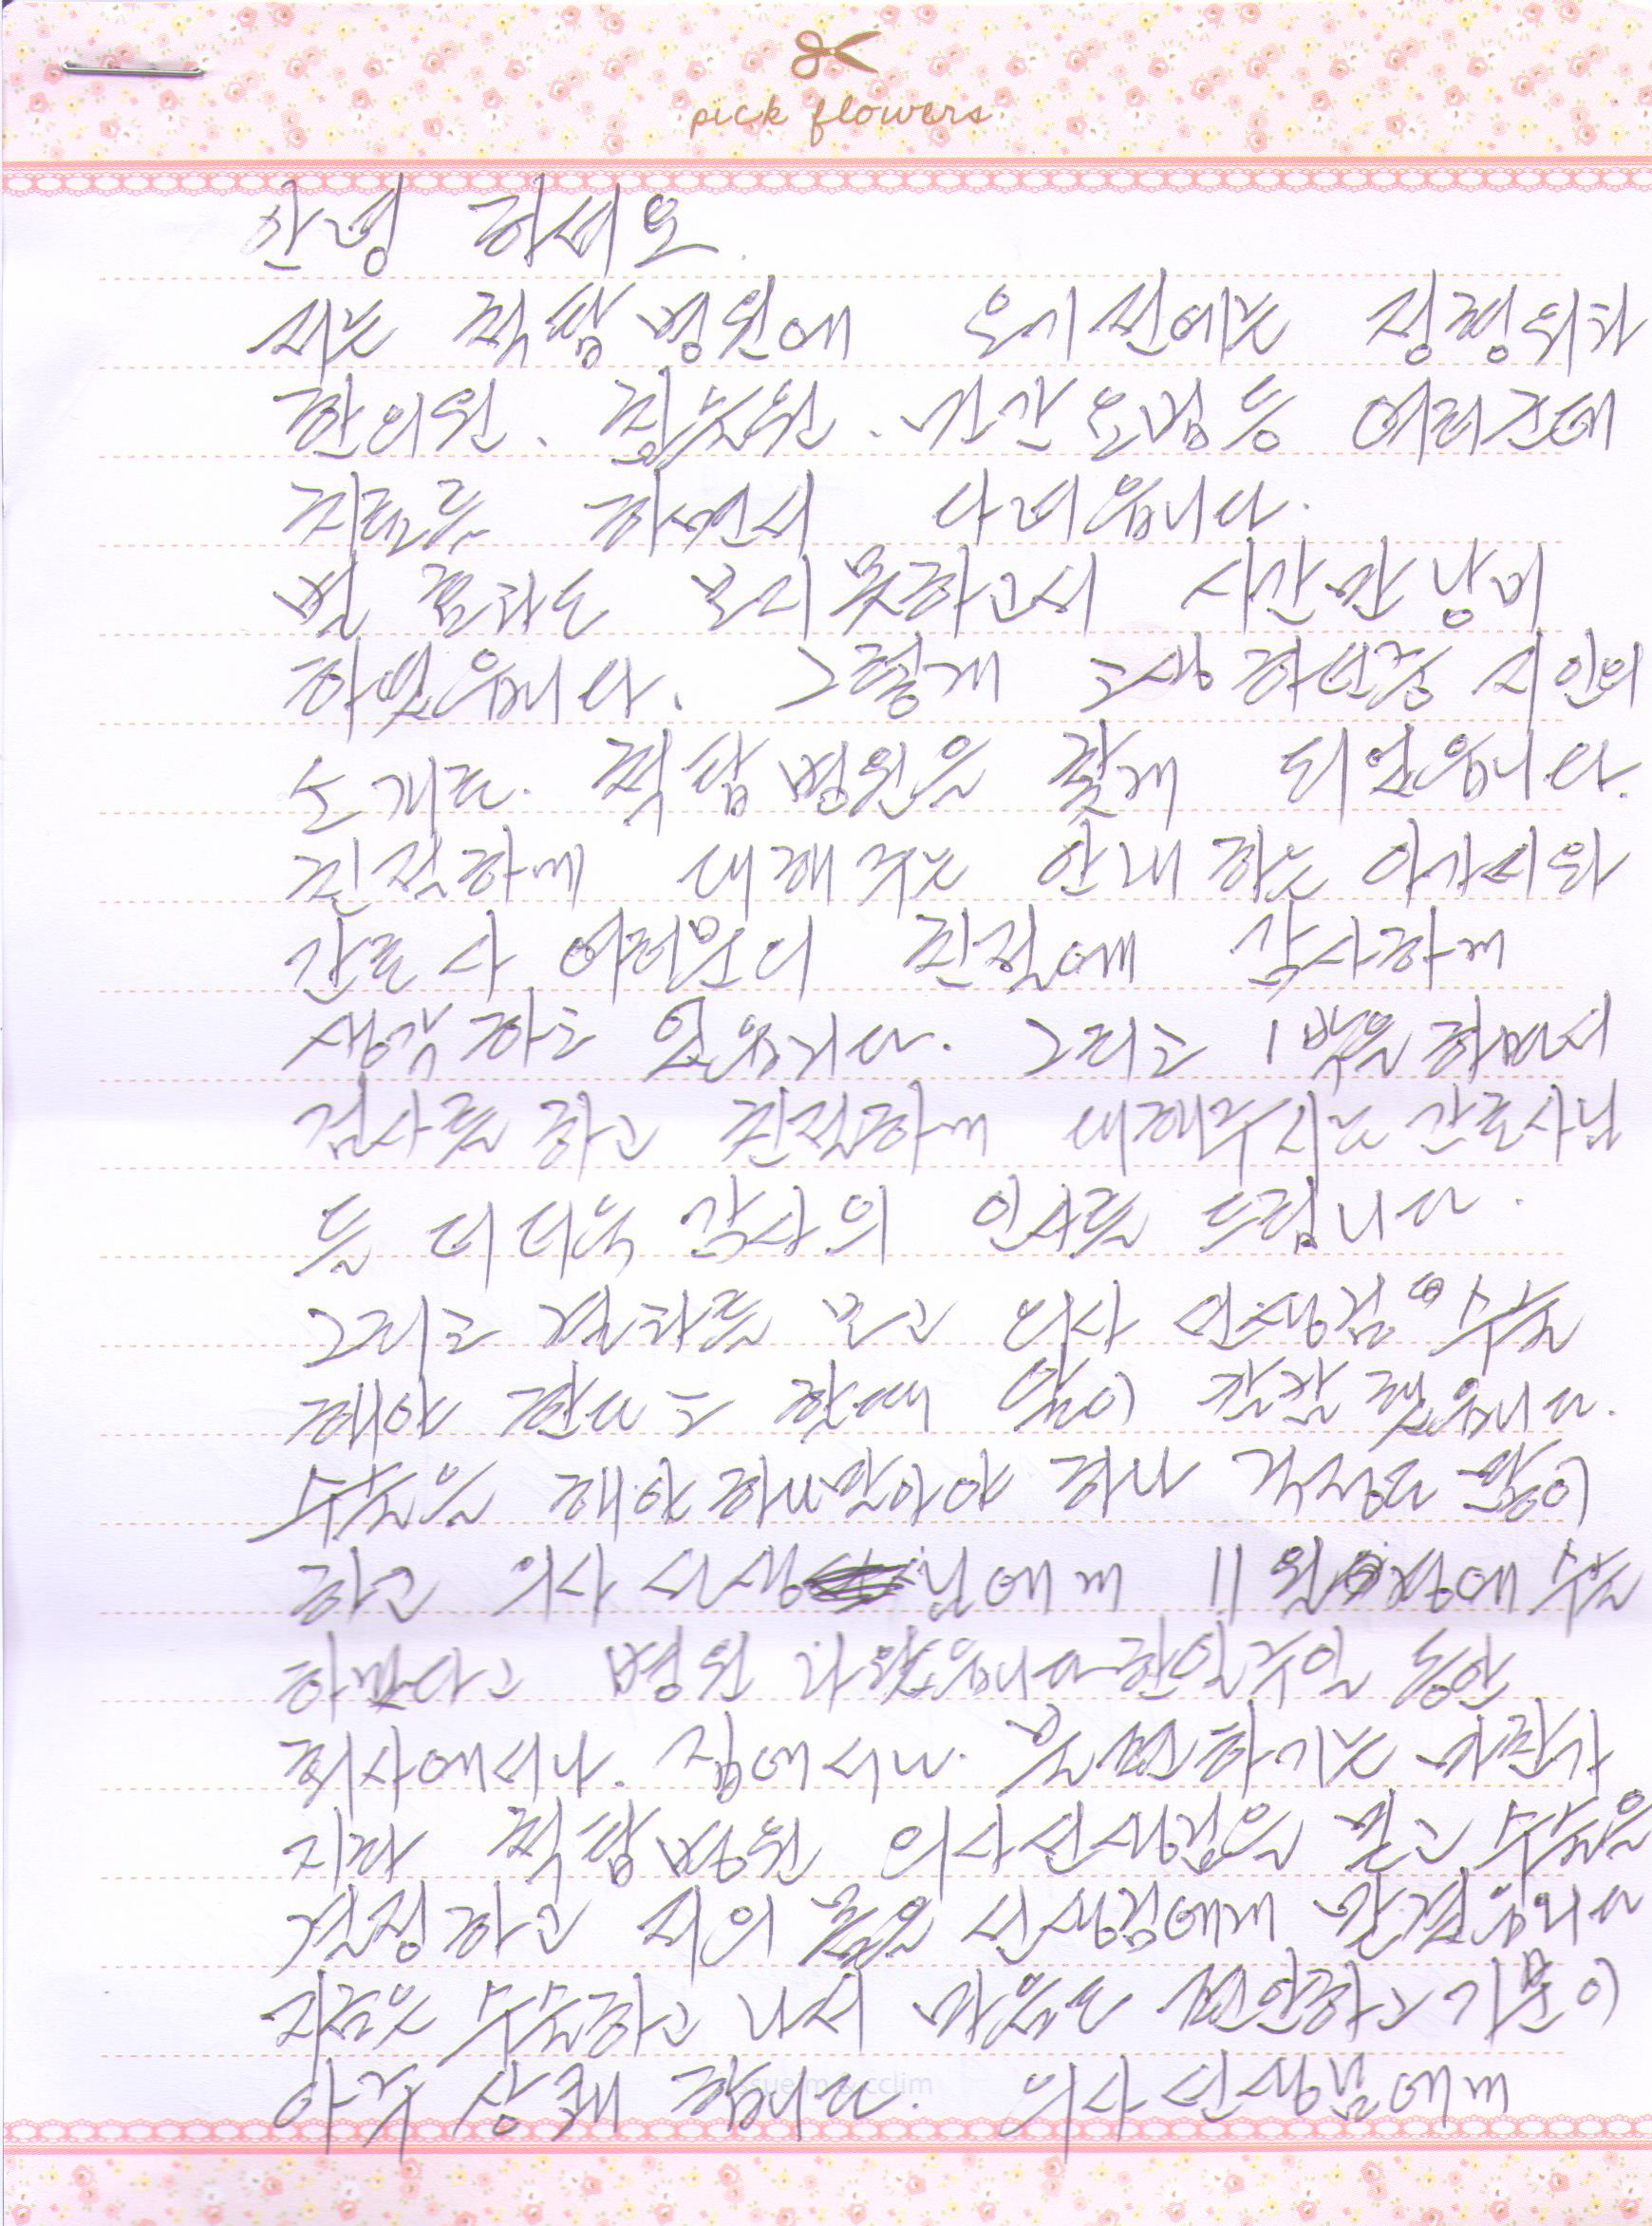 pick flowers
안녕 하세요.
저는 척탑병원에 오기전에는 정형외과
한의원. 침놋원. 민간요법등 여러곳에
치료를 하면서 다녀읍니다.
별 효과도 보지못하고서 시간만 낭비
하였읍니다. 그렇게 고생하던중 지인의
소개로. 척탑병원을 찾게 되었읍니다.
친절하게 대해주는 안내하는 아가씨와
간호사 여러분의 친절에 감사하게
생각하고 있읍니다. 그리고 1박을 하면서
검사를 하고 친절하게 대해주시는 간호사님
들 더더욱 감사의 인사를 드립니다.
그리고 결과를 보고 의사 선생님 수술
해야 한다고 할때 앞이 캄캄 했읍니다.
수술을 해야하나 말아야 하나 걱정도 많이
하고 의사 선생님에게 11월 에 수술
하겠다고 병원 나왔읍니다 한 일주일 동안
회사에서나. 집에서나. 불편하기는 마찬가
지라 척탑병원 의사선생님을 믿고 수술을
결정하고 저의 몸을 선생님에게 맏겼읍니다
지금은 수술하고 나서 마음도 편안하고 기분이
아주 상쾌 합니다. 의사 선생님에게